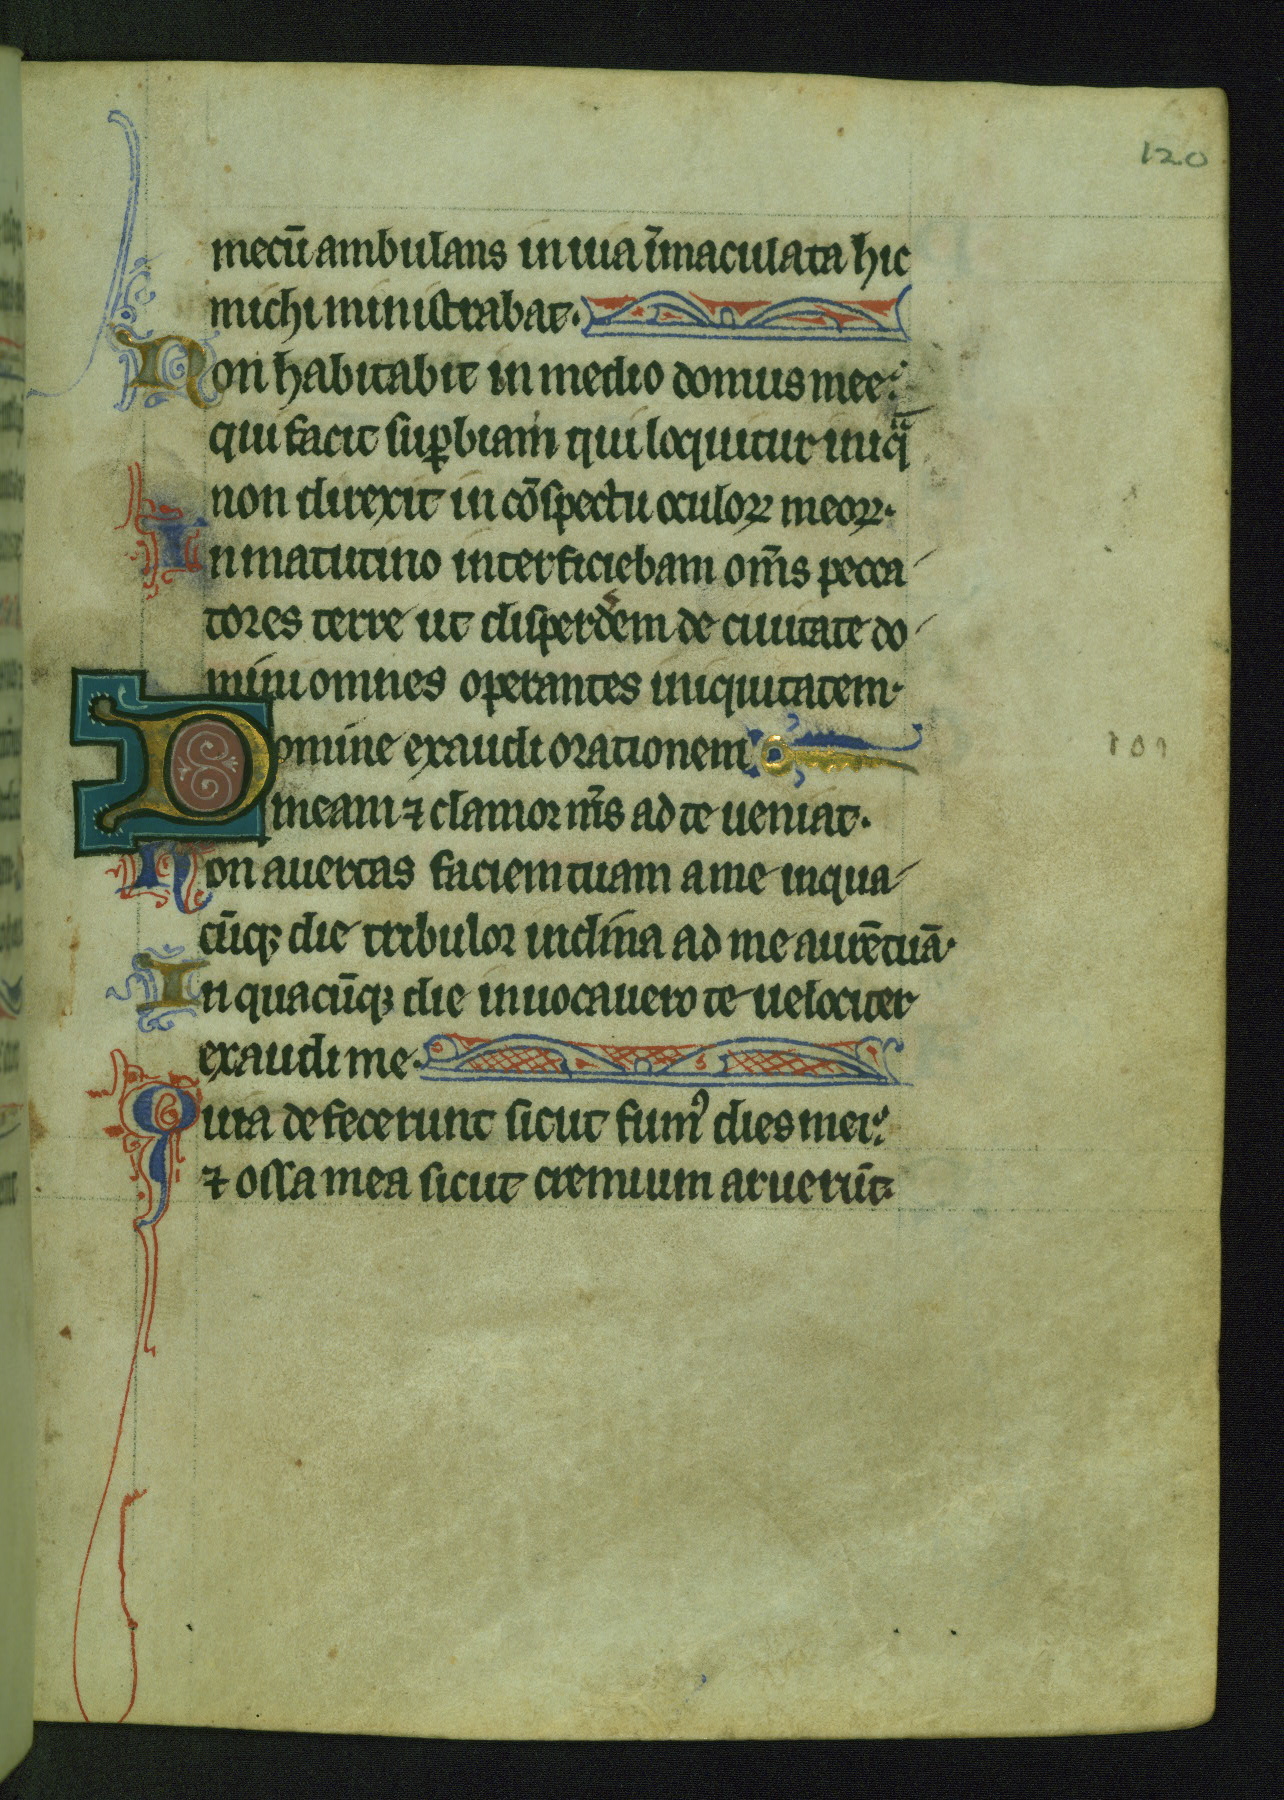 120
mecū ambulans in uia īmaculata hic
michi ministrabat.
Non habitabit in medio domus mee:
qui facit suꝑbiam qui loquitur iniq̄
non direxit in cōspectu oculoꝝ meoꝝ.
In matutino interficiebam om̄s pecca
tores terre ut disperdem de ciuitate do
mini omnes operantes iniquitatem.
Domine exaudi orationem
meam ⁊ clamor m̄s ad te ueniat.
Non auertas faciem tuam a me in qua
cūqꝫ die tribulor inclina ad me aurē tuā.
In quacūqꝫ die inuocauero te uelociter
exaudi me.
Quia defecerunt sicut fumꝰ dies mei:
⁊ ossa mea sicut cremium aruerūt.
101